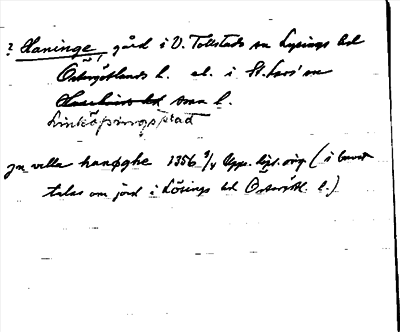 ? Haninge, gård i V. Tollstads sn Lysings hd
Östergötlands l. el. i St. Lars' sn
samma l.
Linköpings stad
jn villa hanøghe 1356 9/4 Upps. dipl. orig. (i brevet
talas om jord i Lösings hd Östergötl. l.)